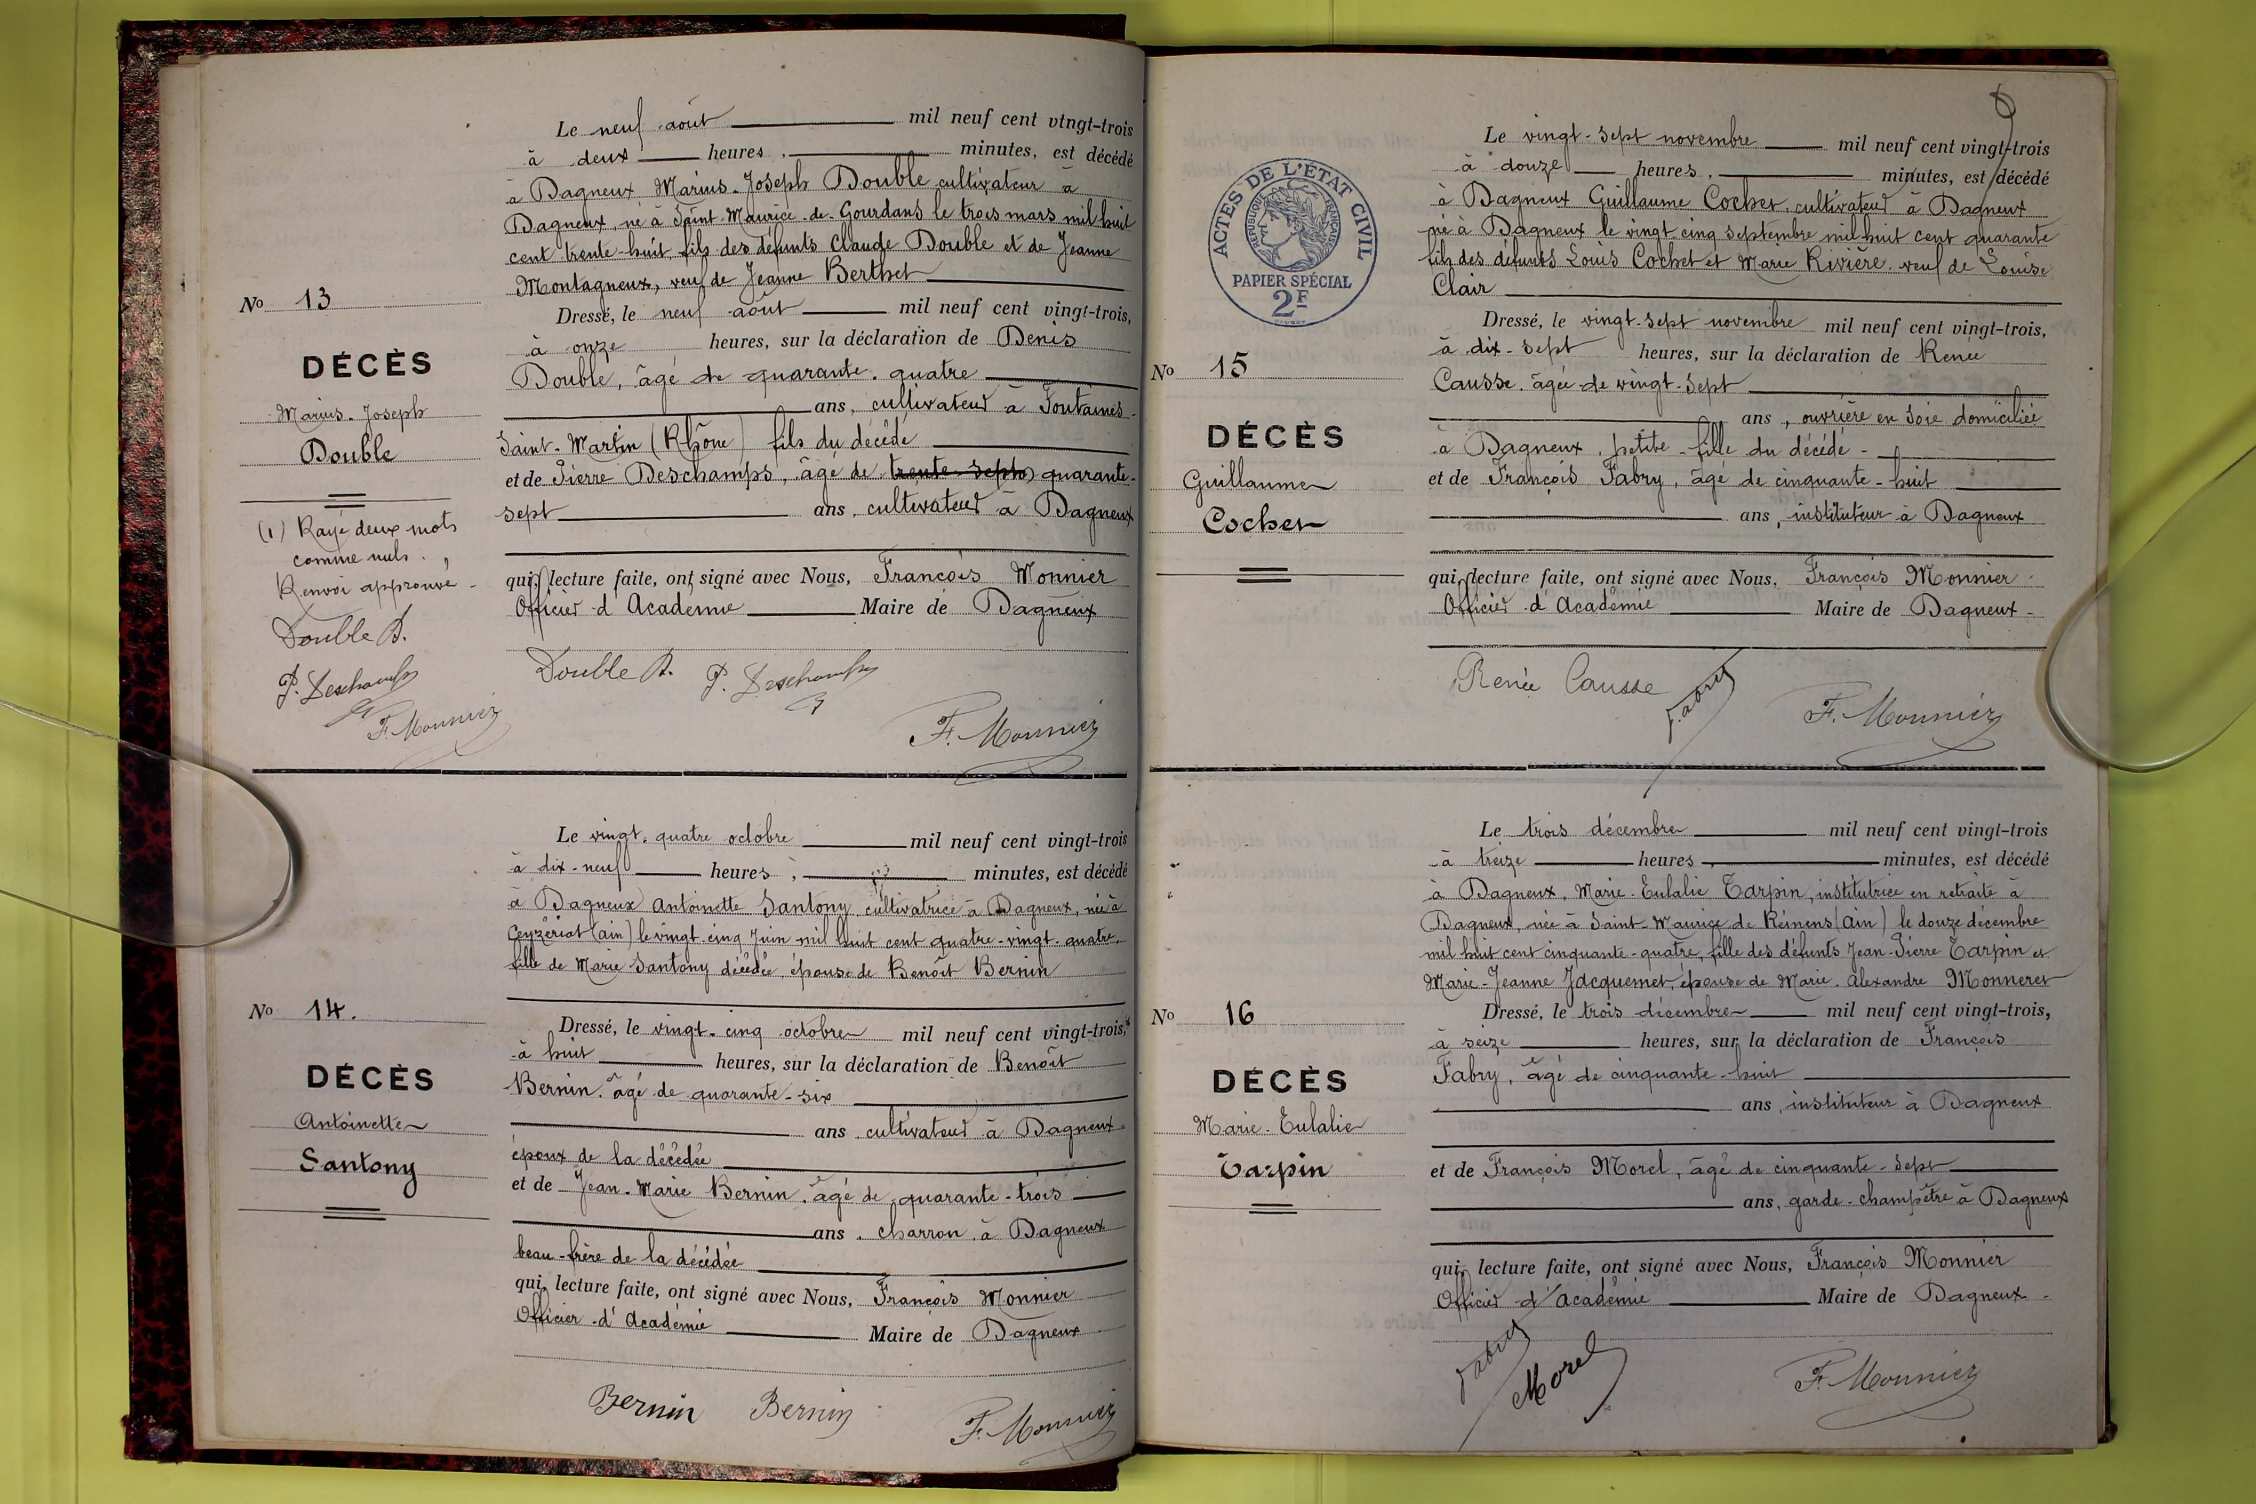 Le neuf août mil neuf cent vingt-trois
à deux heures, minutes, est décédé
à Dagneux Marius-Joseph Double cultivateur à
Dagneux, né à Saint-Maurice-de-Gourdans le trois mars mil huit
cent trente-huit, fils des défunts Claude Double et de Jeanne
Montagneux, veuf de Jeanne Berthet
No 13
Dressé, le neuf août mil neuf cent vingt-trois,
à onze heures, sur la déclaration de Denis
Double, âgé de quarante-quatre
ans, cultivateur à Fontaines-
Saint-Martin (Rhône) fils du décédé
et de Pierre Deschamps, âgé de trente-sept quarante-
sept ans, cultivateur à Dagneux
DÉCÈS
Marius-Joseph
Double
(1) Rayé deux mots
comme nuls.
Renvoi approuvé
Double D.
P. Deschamps
F. Monnier
qui, lecture faite, ont signé avec Nous, François Monnier
Officier d'Académie Maire de Dagneux
Double D. P. Deschamps
F. Monnier
Le vingt-quatre octobre mil neuf cent vingt-trois
à dix-neuf heures, minutes, est décédé
à Dagneux Antoinette Santony, cultivatrice à Dagneux, née à
Ceyzériat (ain) le vingt-cinq Juin mil huit cent quatre-vingt-quatre,
fille de Marie Santony décédée, épouse de Benoît Bernin
No 14.
Dressé, le vingt-cinq octobre mil neuf cent vingt-trois,
à huit heures, sur la déclaration de Benoît
Bernin, âgé de quarante-six
ans, cultivateur à Dagneux
époux de la décédée
et de Jean-Marie Bernin, âgé de quarante-trois
ans, charron à Dagneux
beau-frère de la décédée
DÉCÈS
Antoinette
Santony
qui, lecture faite, ont signé avec Nous, François Monnier
Officier d'Académie Maire de Dagneux
Bernin Bernin
F. Monnier
6
ACTES DE L'ÉTAT CIVIL
RÉPUBLIQUE FRANÇAISE
PAPIER SPÉCIAL
2F
Le vingt-sept novembre mil neuf cent vingt-trois
à douze heures, minutes, est décédé
à Dagneux Guillaume Cochet, cultivateur à Dagneux
né à Dagneux le vingt cinq septembre mil huit cent quarante
fils des défunts Louis Cochet et Marie Rivière, veuf de Louise
Clair
No 15
Dressé, le vingt-sept novembre mil neuf cent vingt-trois,
à dix-sept heures, sur la déclaration de Renée
Causse, âgée de vingt-sept
ans, ouvrière en soie domiciliée
à Dagneux, petite-fille du décédé
et de François Fabry, âgé de cinquante-huit
ans, instituteur à Dagneux
DÉCÈS
Guillaume
Cochet
qui, lecture faite, ont signé avec Nous, François Monnier
Officier d'Académie Maire de Dagneux
Renée Causse Fabry F. Monnier
Le trois décembre mil neuf cent vingt-trois
à treize heures, minutes, est décédé
à Dagneux, Marie-Eulalie Tarpin, institutrice en retraite à
Dagneux, née à Saint-Maurice de Rémens (Ain) le douze décembre
mil huit cent cinquante-quatre, fille des défunts Jean-Pierre Tarpin et
Marie-Jeanne Jacquemet, épouse de Marie-Alexandre Monneret
No 16
Dressé, le trois décembre mil neuf cent vingt-trois,
à seize heures, sur la déclaration de François
Fabry, âgé de cinquante-huit
ans, instituteur à Dagneux
et de François Morel, âgé de cinquante-sept
ans, garde-champêtre à Dagneux
DÉCÈS
Marie-Eulalie
Tarpin
qui, lecture faite, ont signé avec Nous, François Monnier
Officier d'Académie Maire de Dagneux
Fabry Morel F. Monnier